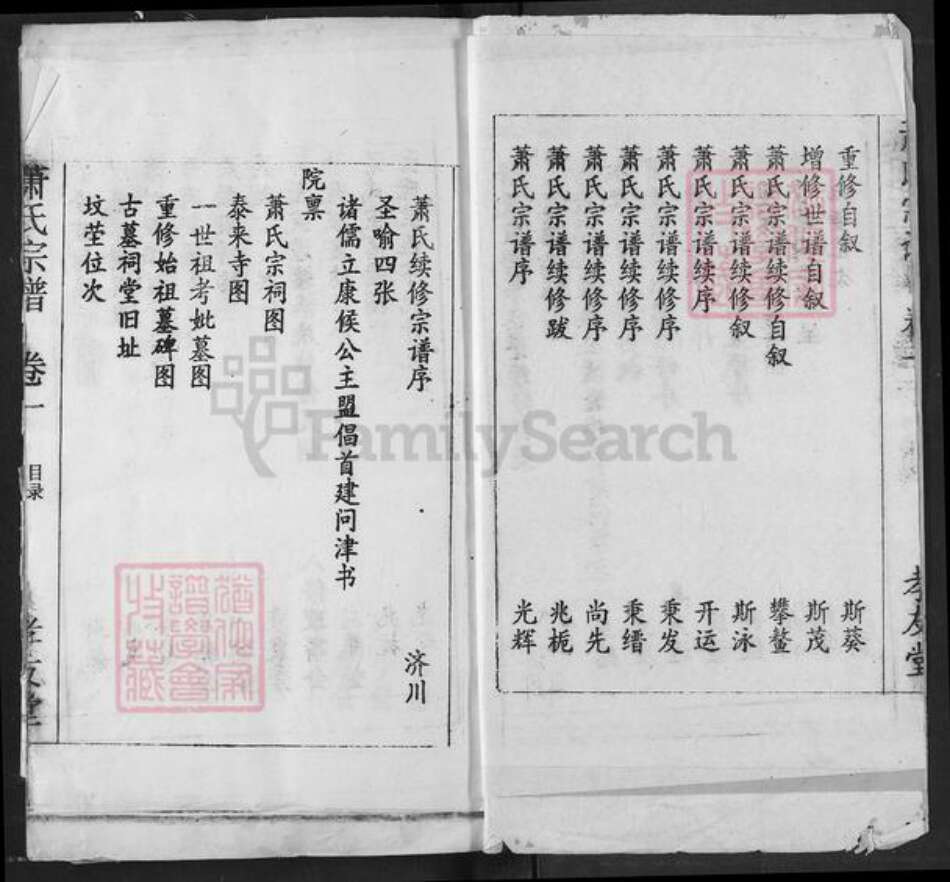 重修自叙 斯葵
增修世谱自叙 斯茂
萧氏宗谱续修自叙 攀鳌
萧氏宗谱续修叙 斯泳
萧氏宗谱续序 开运
萧氏宗谱续修序 秉发
萧氏宗谱续修序 秉缙
萧氏宗谱续修序 尚先
萧氏宗谱续修跋 兆栀
萧氏宗谱序 光辉
孝友堂
萧氏续修宗谱序 济川
圣喻四张
诸儒立康候公主盟倡首建问津书
院禀
萧氏宗祠图
泰来寺图
一世祖考妣墓图
重修始祖墓碑图
古墓祠堂旧址
坟茔位次
萧氏宗谱 卷一 目录 孝友堂
FamilySearch